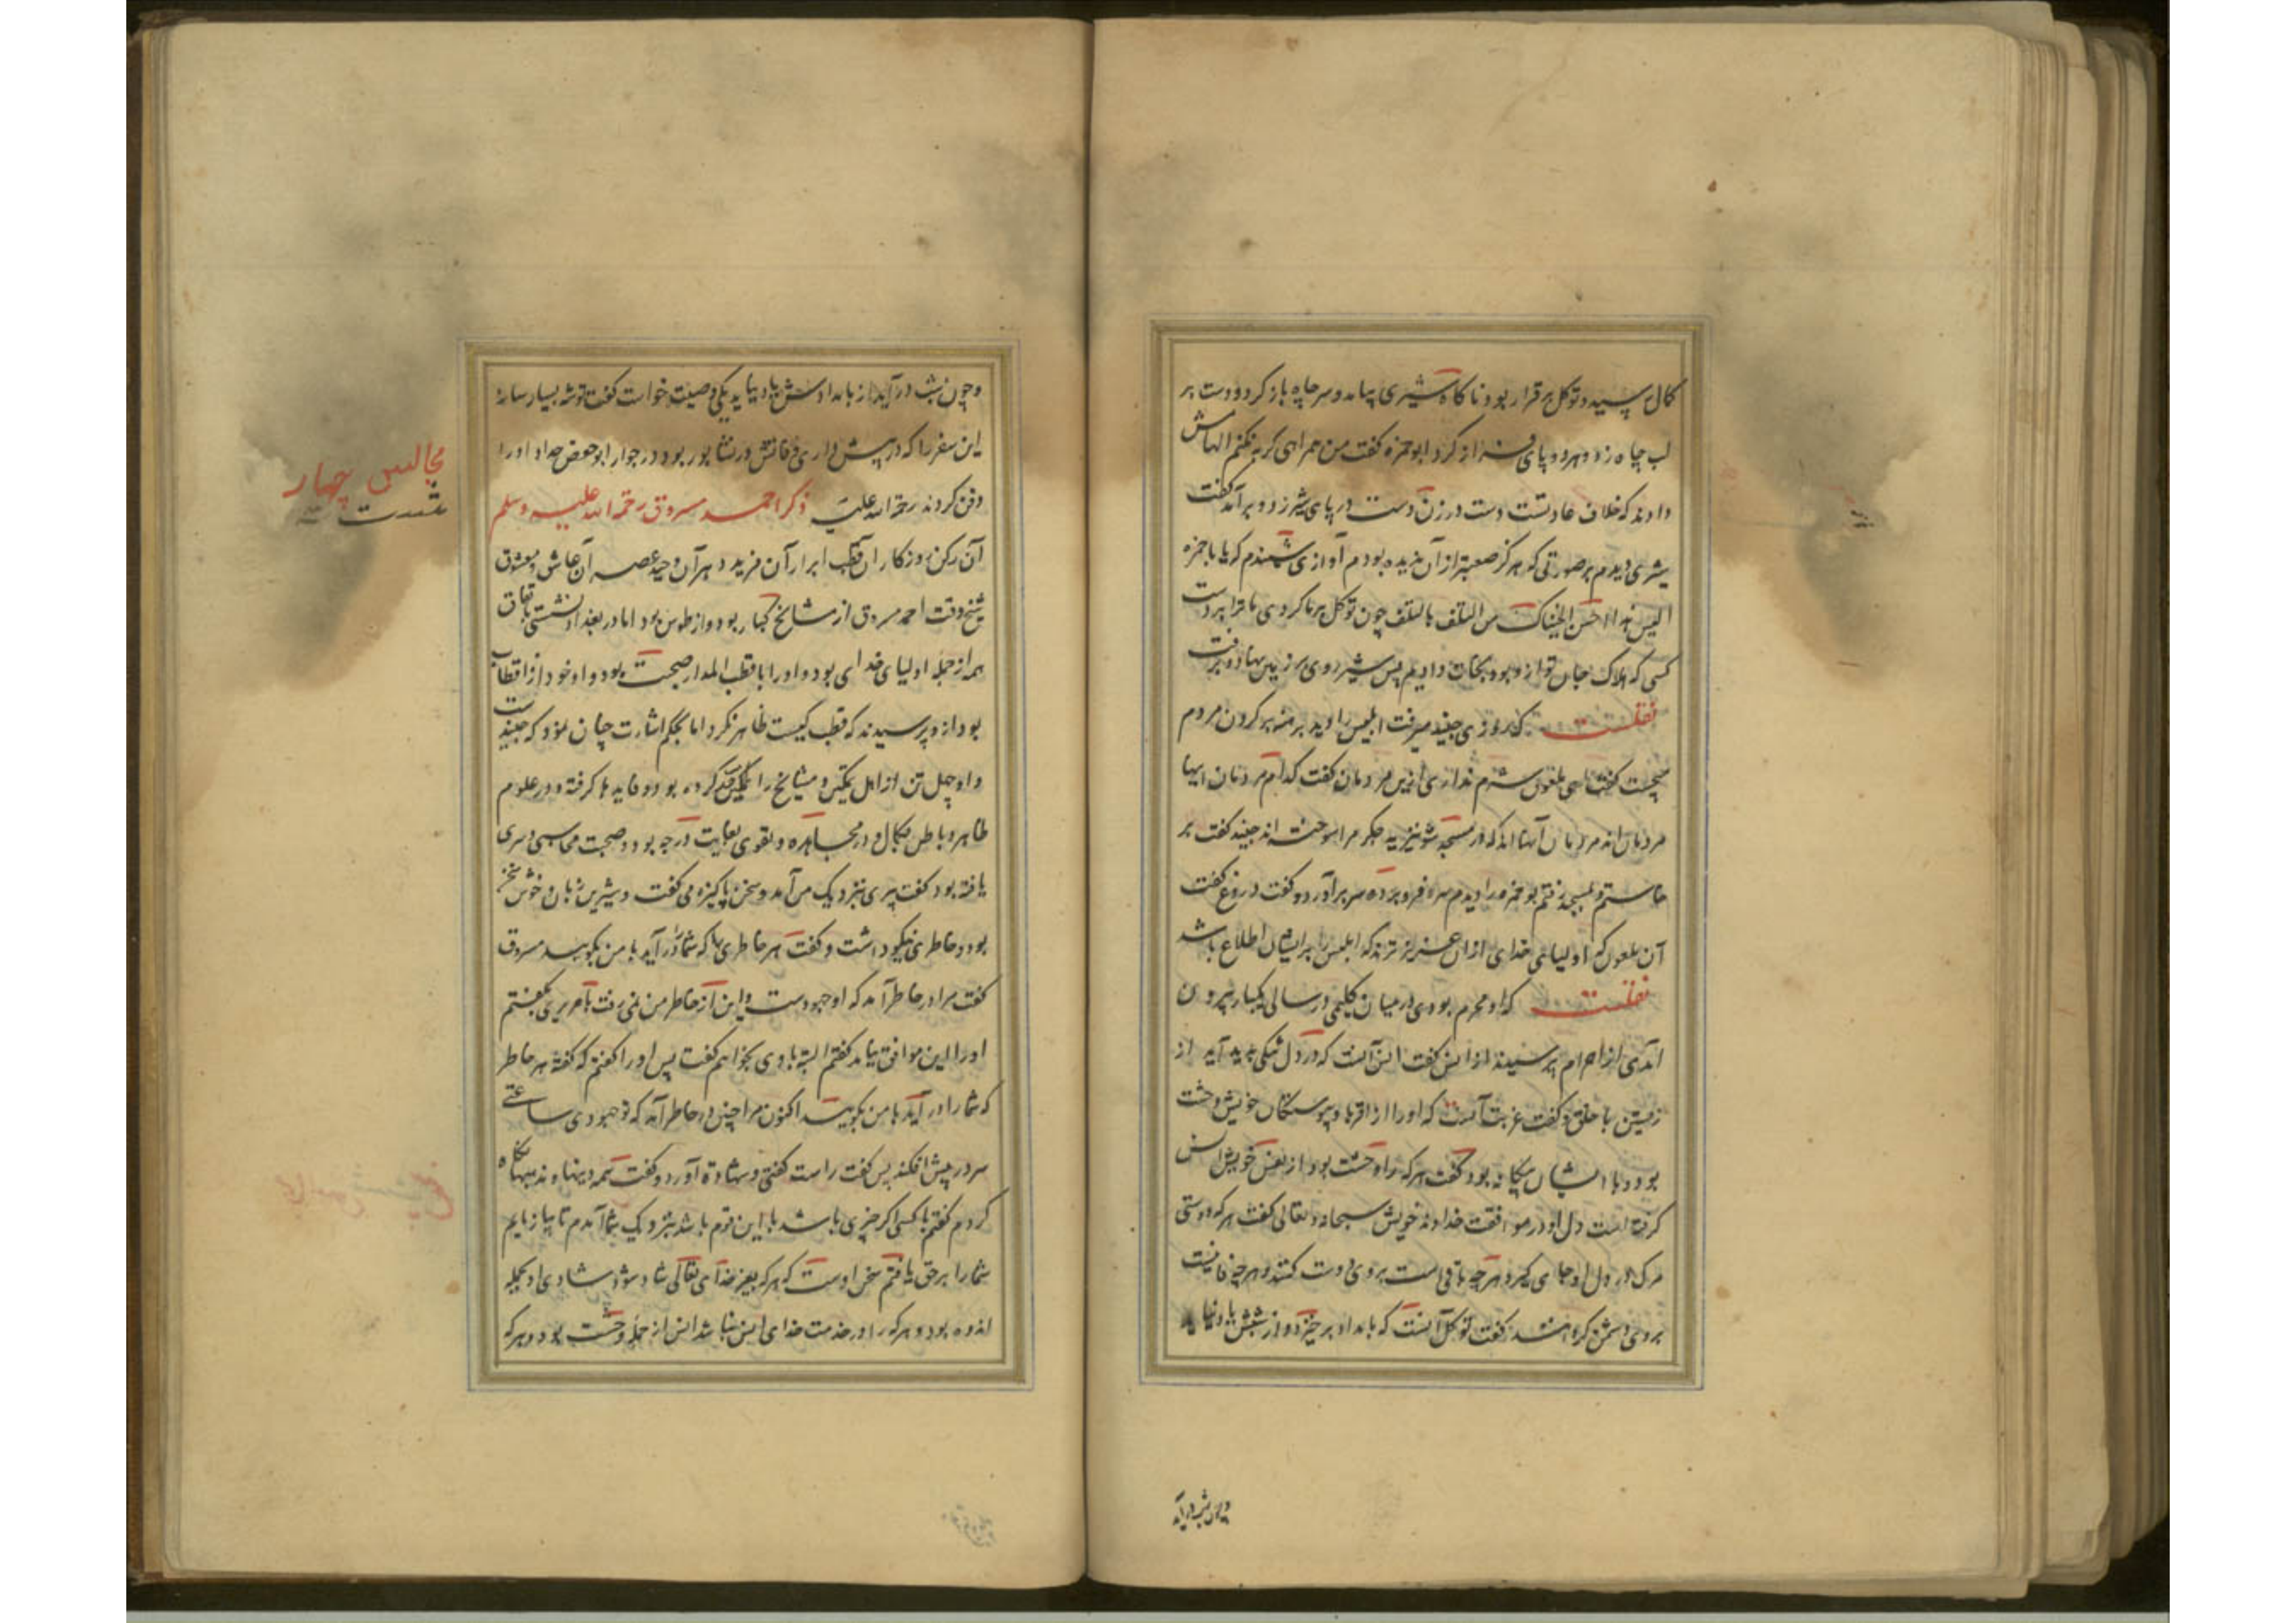 کمال رسید و توکل برقرار بود ناکاه شیری بیامد و سر چاه باز کرد و دست بر
لب چاه زد و هر دو پای فراز کرد ابوحمزه کفت من همراهی کربه نکنم الهامش
دادند که خلاف عادتست دست در زن دست در پای شیر زد و برآمد کفت
شیری دیدم بر صورتی که هرکز صعبتر از آن ندیده بودم آوازی شنیدم که یا باحمزه
الیس هذا احسن نجیناک من التلف بالتلف چون توکل بر ما کردی ما ترا بر دست
کسی که هلاک جان تو ازو بود نجات دادیم پس شیر روی بر زمین نهاد و برفت
نقلست که روزی جنید میرفت ابلیس را دید برهنه بر کردن مردم
میجست کفت ای ملعون شرم نداری ازین مردمان کفت کدام مردمان اینها
مردمان اند مردمان آنها اند که در مسجد شونیزیه جکر مرا سوخته اند جنید کفت بر
خاستم و بمسجد رفتم بوحمزه را دیدم سر فرو برده سر برآورد و کفت دروغ کفت
آن ملعون که اولیای خدای از آن عزیزترند که ابلیس را بر ایشان اطلاع باشد
نقلست که او محرم بودی در میان کلیمی در سالی یکبار بیرون
آمدی از احرام پرسیدند از انس کفت انس آنست که در دل تنکی پدید آید از
زیستن با خلق و کفت غربت آنست که او را از اقربا و پیوستکان خویش وحشت
بود و با ایشان بیکانه بود کفت هر که را وحشت بود از نفس خویش انس
کرفته است دل او در موافقت خداوند خویش سبحانه و تعالی کفت هر که دوستی
مرک در دل او جای کیرد هر چه باقی است بر وی دوست کنند و هر چه فانیست
بر وی دشمن کردانند کفت توکل آنست که بامداد برخیزد و از شبش یاد نیاید
و چون شب درآید
و چون شب درآید از بامدادش یاد نیاید یکی وصیت خواست کفت توشه بسیار ساز
این سفر را که در پیش داری وفاتش در نشابور بود در جوار ابوحفص حداد او را
دفن کردند رحمة الله علیه ذکر احمد مسروق رحمة الله علیه وسلم
آن رکن روزکار آن قطب ابرار آن فرید دهر آن وحید عصر آن عاشق معشوق
شیخ وقت احمد مسروق از مشایخ کبار بود و از طوس بود اما در بغداد نشستی باتفاق
همه از جمله اولیای خدای بود و او را با قطب المدار صحبت بود و او خود از اقطاب
بود ازو پرسیدند که قطب کیست ظاهر نکرد اما بحکم اشارت چنان نمود که جنیدست
و او چهل تن از اهل تمکین و مشایخ را خدمت کرده بود و فایده ها کرفته و در علوم
ظاهر و باطن بکمال و در مجاهده و تقوی بغایت درجه بود و صحبت محاسبی و سری
یافته بود کفت پیری بنزدیک من آمد و سخن پاکیزه می کفت و شیرین زبان و خوش سخن
بود و خاطری نیکو داشت و کفت هر خاطری که شما را درآید با من بکویید مسروق
کفت مرا در خاطر آمد که او جهودست و این از خاطر من نمی رفت با مریری بکفتم
او را این موافق نیامد کفتم البته با وی بخواهم کفت پس او را کفتم که کفتهٔ هر خاطر
که شما را درآید با من بکویید اکنون مرا چنین در خاطر آمد که تو جهودی ساعتی
سر در پیش افکند پس کفت راست کفتی و شهادت آورد و کفت همه دینها و مذهبها نکاه
کردم کفتم با کسی اکر چیزی باشد با این قوم باشد بنزدیک شما آمدم تا بیازمایم
شما را بر حق یافتم سخن اوست که هر که بغیر خدای تعالی شاد شود شادی او بجمله
اندوه بود و هر که را در خدمت خدای انس نباشد انس از جمله وحشت بود و هر که
مجالس چهار